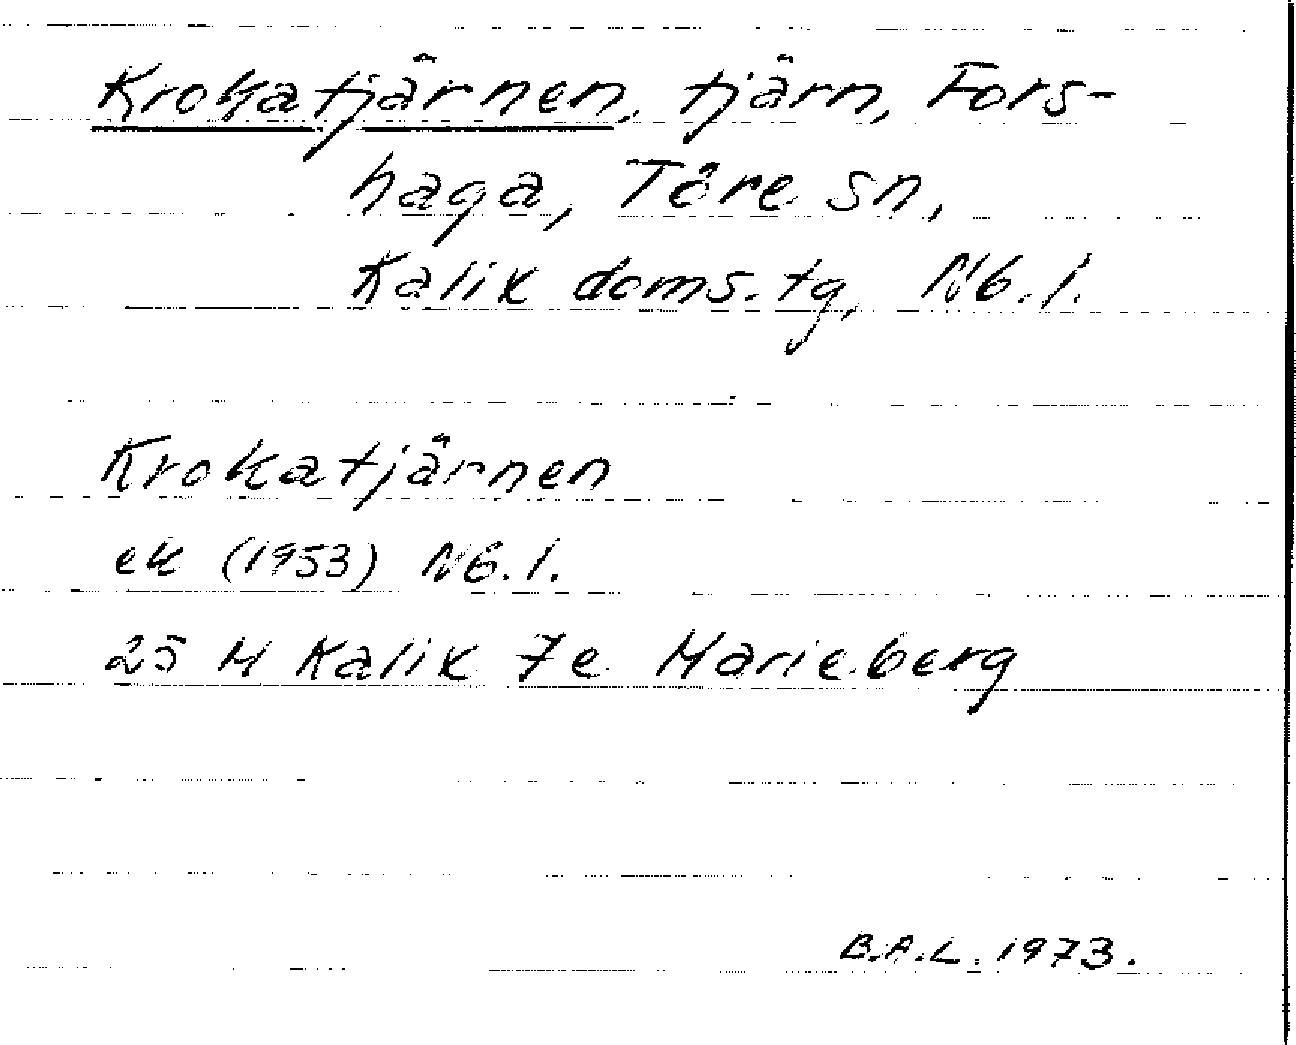 Krokatjärnen, tjärn, Fors-
haga, Töre sn,
Kalix doms. tg, Nb. l.
Krokatjärnen
ek (1953) Nb. l.
25 M Kalix 7e Marieberg
B.A.L. 1973.